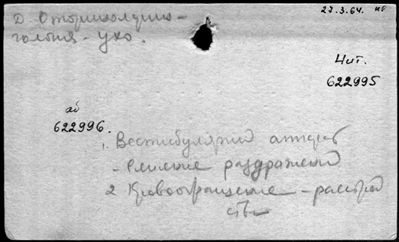 27.3.64. нб
Д. Оторинолярин-
гология - ухо.
Чит.
622995
аб
622996.
1. Вестибулярный аппарат
- Влияние раздражений
2 Кровообращение - расстрой
ства